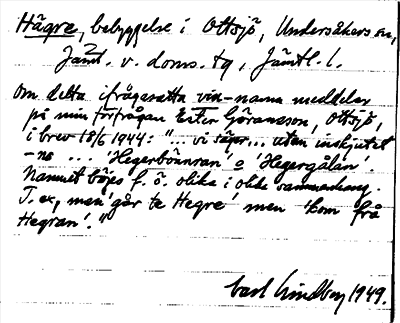 Hägre, bebyggelse i Ottsjö, Undersåkers sn,
Jämt. v. doms. tg, Jämtl. l.
Om detta ifrågasatta vin-namn meddelar
på min förfrågan Ester Göransson, Ottsjö,
i brev 18/6 1944: "... vi säger... utan inskjutet
-ne .... 'Hegerbönnran' o 'Hegergålan'.
Namnet böjes f. ö. olika i olika sammanhang.
T. ex. men 'går te Hegre' men 'kom frå
Hegran'."
Carl Lindberg 1949.